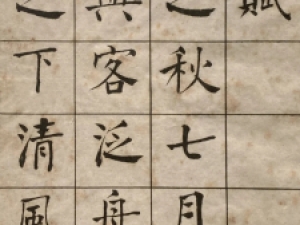 賦
之秋七月
與客泛舟
之下清風